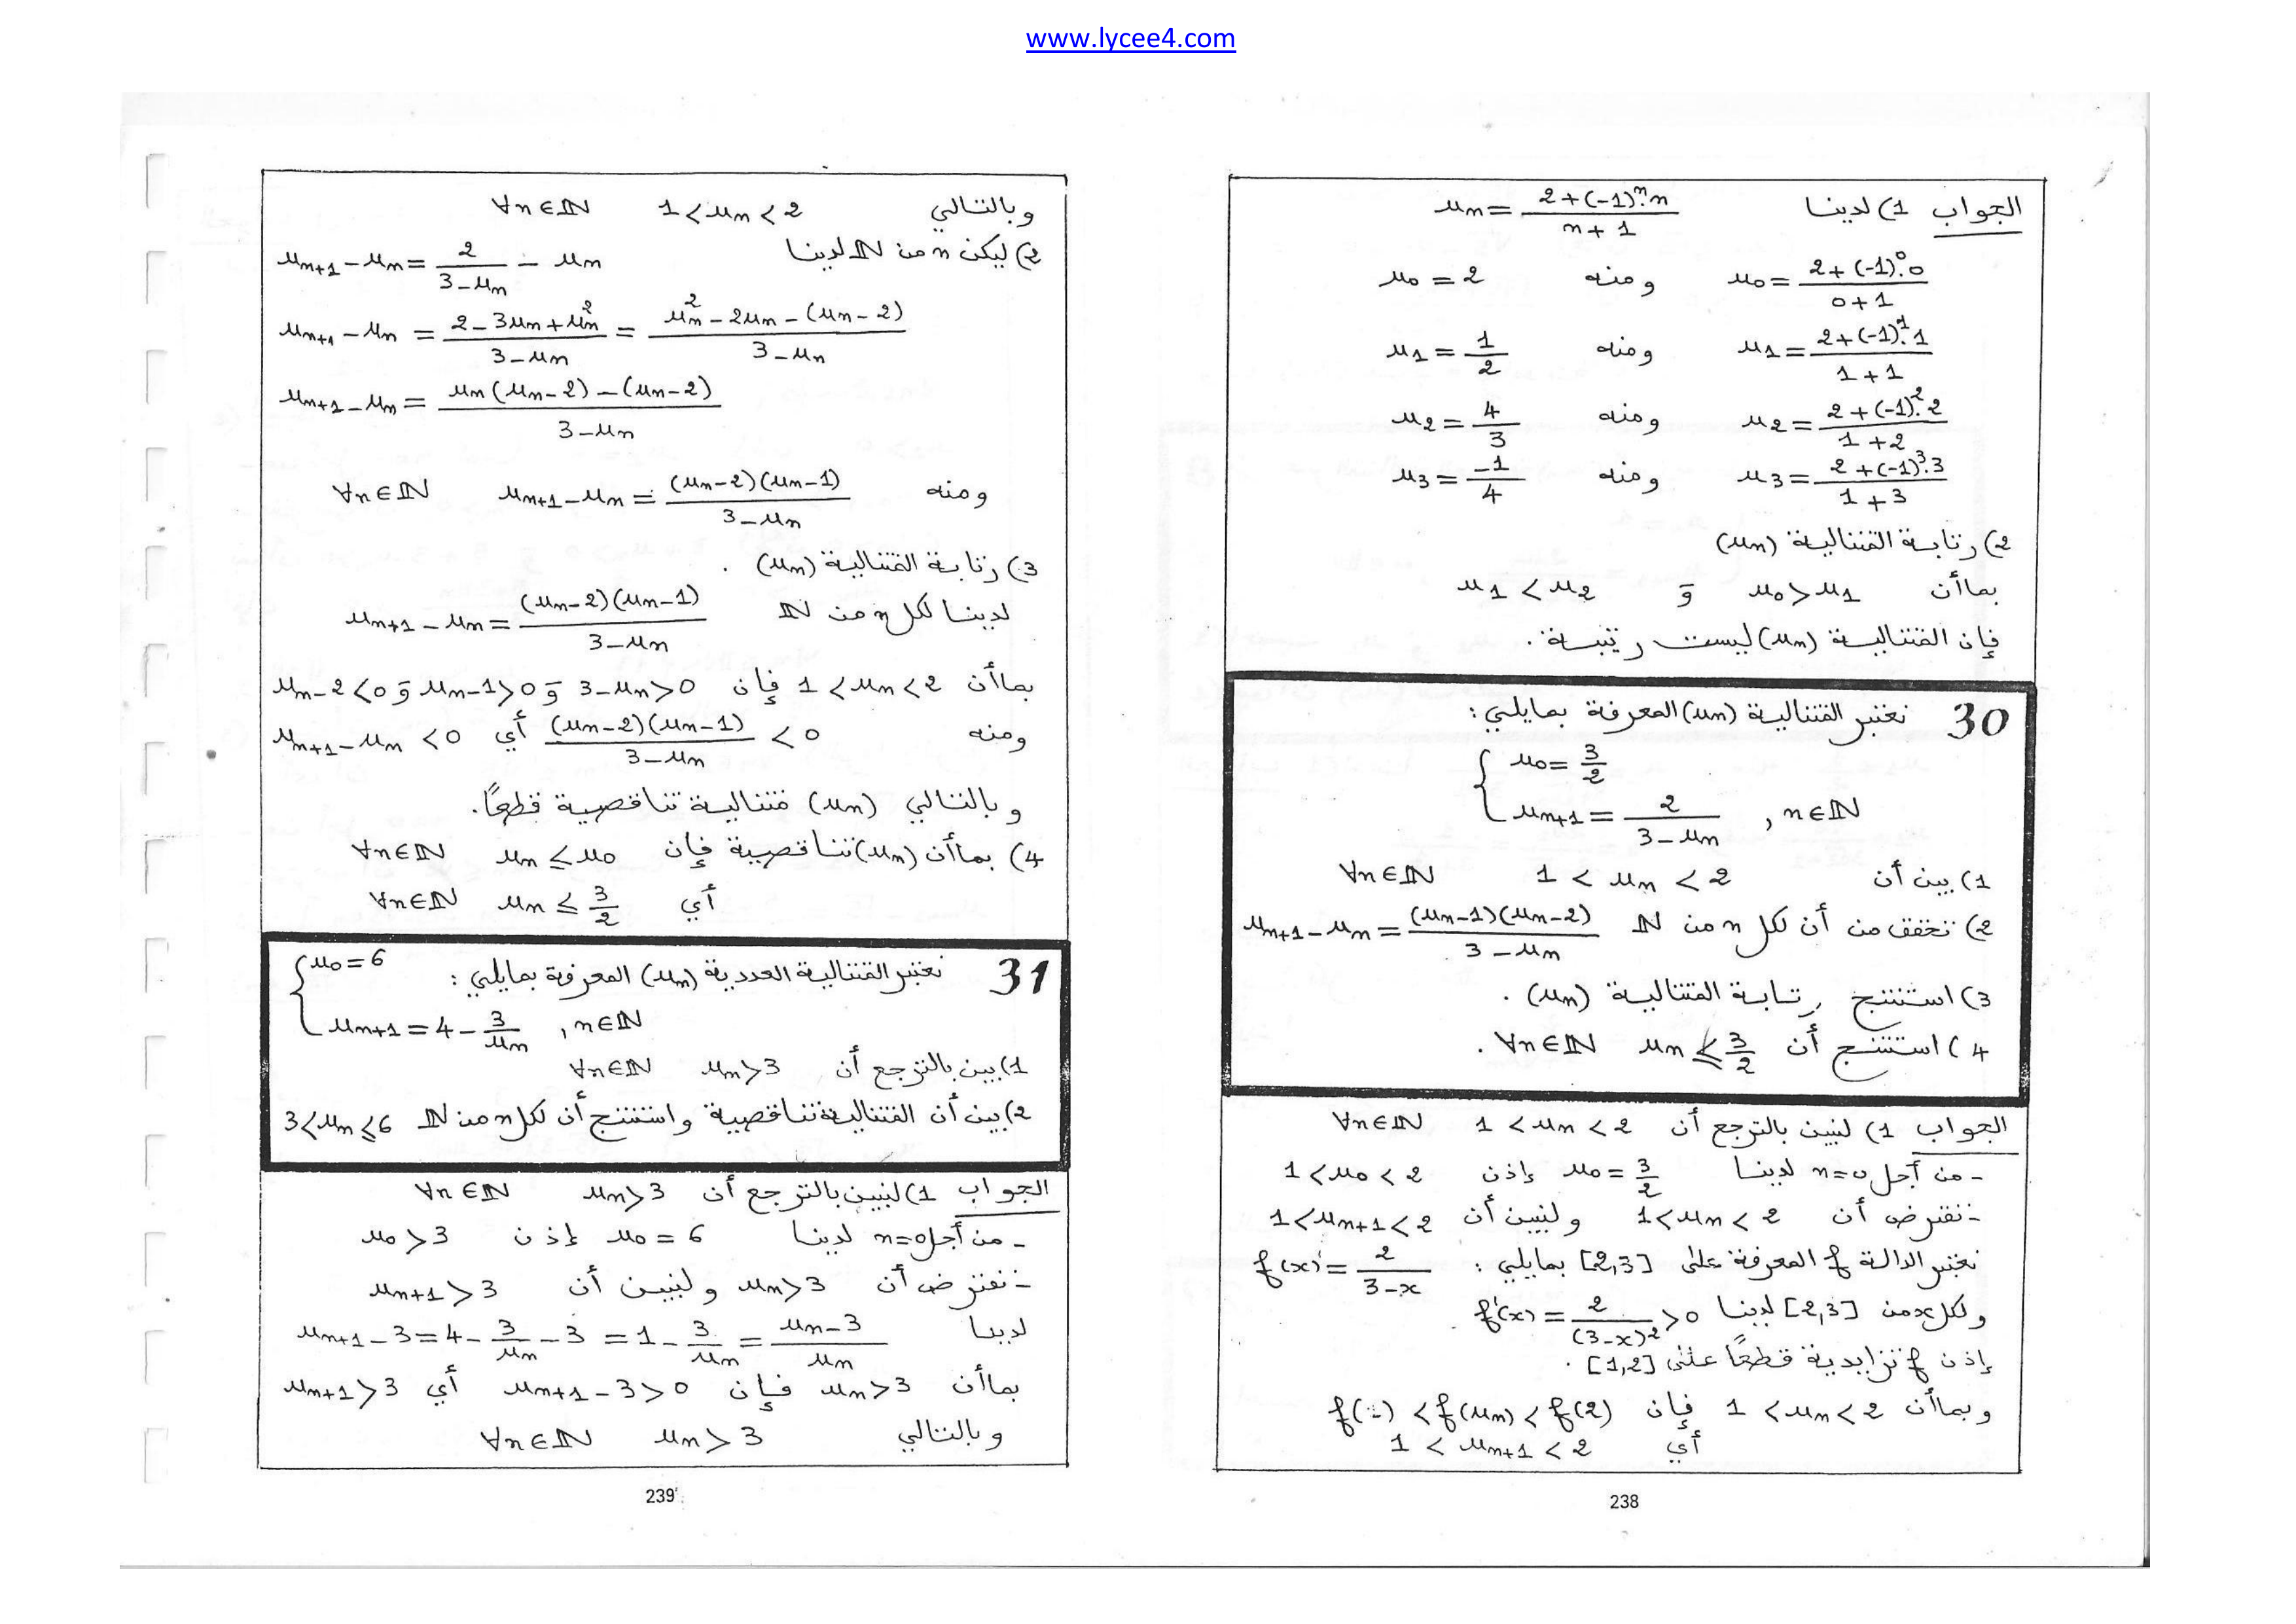 www.lycee4.com
الجواب 1) لدينا u_n = (2+(-1)^n.n)/(n+1)
u_0 = (2+(-1)^0.0)/(0+1) ومنه u_0 = 2
u_1 = (2+(-1)^1.1)/(1+1) ومنه u_1 = 1/2
u_2 = (2+(-1)^2.2)/(1+2) ومنه u_2 = 4/3
u_3 = (2+(-1)^3.3)/(1+3) ومنه u_3 = -1/4
2) رتابة المتتالية (u_n)
بما أن u_0 > u_1 و u_1 < u_2
فإن المتتالية (u_n) ليست رتيبة.
30 نعتبر المتتالية (u_n) المعرفة بمايلي:
{ u_0 = 3/2
u_{n+1} = 2/(3-u_n) , n∈ℕ
1) بين أن 1 < u_n < 2 ∀n∈ℕ
2) تحقق من أن لكل n من ℕ u_{n+1} - u_n = (u_n-1)(u_n-2)/(3-u_n)
3) استنتج رتابة المتتالية (u_n).
4) استنتج أن u_n ≤ 3/2 ∀n∈ℕ.
الجواب 1) لنبين بالترجع أن 1 < u_n < 2 ∀n∈ℕ
- من أجل n=0 لدينا u_0 = 3/2 إذن 1 < u_0 < 2
- نفترض أن 1 < u_n < 2 ولنبين أن 1 < u_{n+1} < 2
نعتبر الدالة f المعرفة على [2,3] بمايلي: f(x) = 2/(3-x)
ولكل x من [2,3] لدينا f'(x) = 2/(3-x)^2 > 0
إذن f تزايدية قطعًا على [1,2].
وبما أن 1 < u_n < 2 فإن f(1) < f(u_n) < f(2)
أي 1 < u_{n+1} < 2
238
وبالتالي 1 < u_n < 2 ∀n∈ℕ
2) ليكن n من ℕ لدينا u_{n+1} - u_n = 2/(3-u_n) - u_n
u_{n+1} - u_n = (2-3u_n+u_n^2)/(3-u_n) = (u_n^2-2u_n-(u_n-2))/(3-u_n)
u_{n+1} - u_n = (u_n(u_n-2)-(u_n-2))/(3-u_n)
ومنه u_{n+1} - u_n = (u_n-2)(u_n-1)/(3-u_n) ∀n∈ℕ
3) رتابة المتتالية (u_n).
لدينا لكل n من ℕ u_{n+1} - u_n = (u_n-2)(u_n-1)/(3-u_n)
بما أن 1 < u_n < 2 فإن 3-u_n > 0 و u_n-1 > 0 و u_n-2 < 0
ومنه (u_n-2)(u_n-1)/(3-u_n) < 0 أي u_{n+1} - u_n < 0
وبالتالي (u_n) متتالية تناقصية قطعًا.
4) بما أن (u_n) تناقصية فإن u_n ≤ u_0 ∀n∈ℕ
أي u_n ≤ 3/2 ∀n∈ℕ
31 نعتبر المتتالية العددية (u_n) المعرفة بمايلي: { u_0 = 6
u_{n+1} = 4 - 3/u_n , n∈ℕ
1) بين بالترجع أن u_n > 3 ∀n∈ℕ
2) بين أن المتتالية تناقصية واستنتج أن لكل n من ℕ 3 < u_n ≤ 6
الجواب 1) لنبين بالترجع أن u_n > 3 ∀n∈ℕ
- من أجل n=0 لدينا u_0 = 6 إذن u_0 > 3
- نفترض أن u_n > 3 ولنبين أن u_{n+1} > 3
لدينا u_{n+1} - 3 = 4 - 3/u_n - 3 = 1 - 3/u_n = (u_n-3)/u_n
بما أن u_n > 3 فإن u_{n+1} - 3 > 0 أي u_{n+1} > 3
وبالتالي u_n > 3 ∀n∈ℕ
239